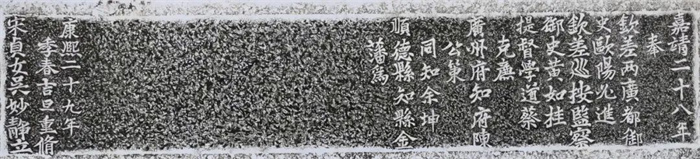 嘉靖二十八年
奉
欽差两廣都御
史歐陽必進
欽差巡按監察
御史黃如桂
提督學道蔡
克廉
廣州府知府陳
公䇿
同知余坤
順德縣知縣金
藩爲
康熙二十九年
季春吉旦重脩
宋貞女吳妙靜立